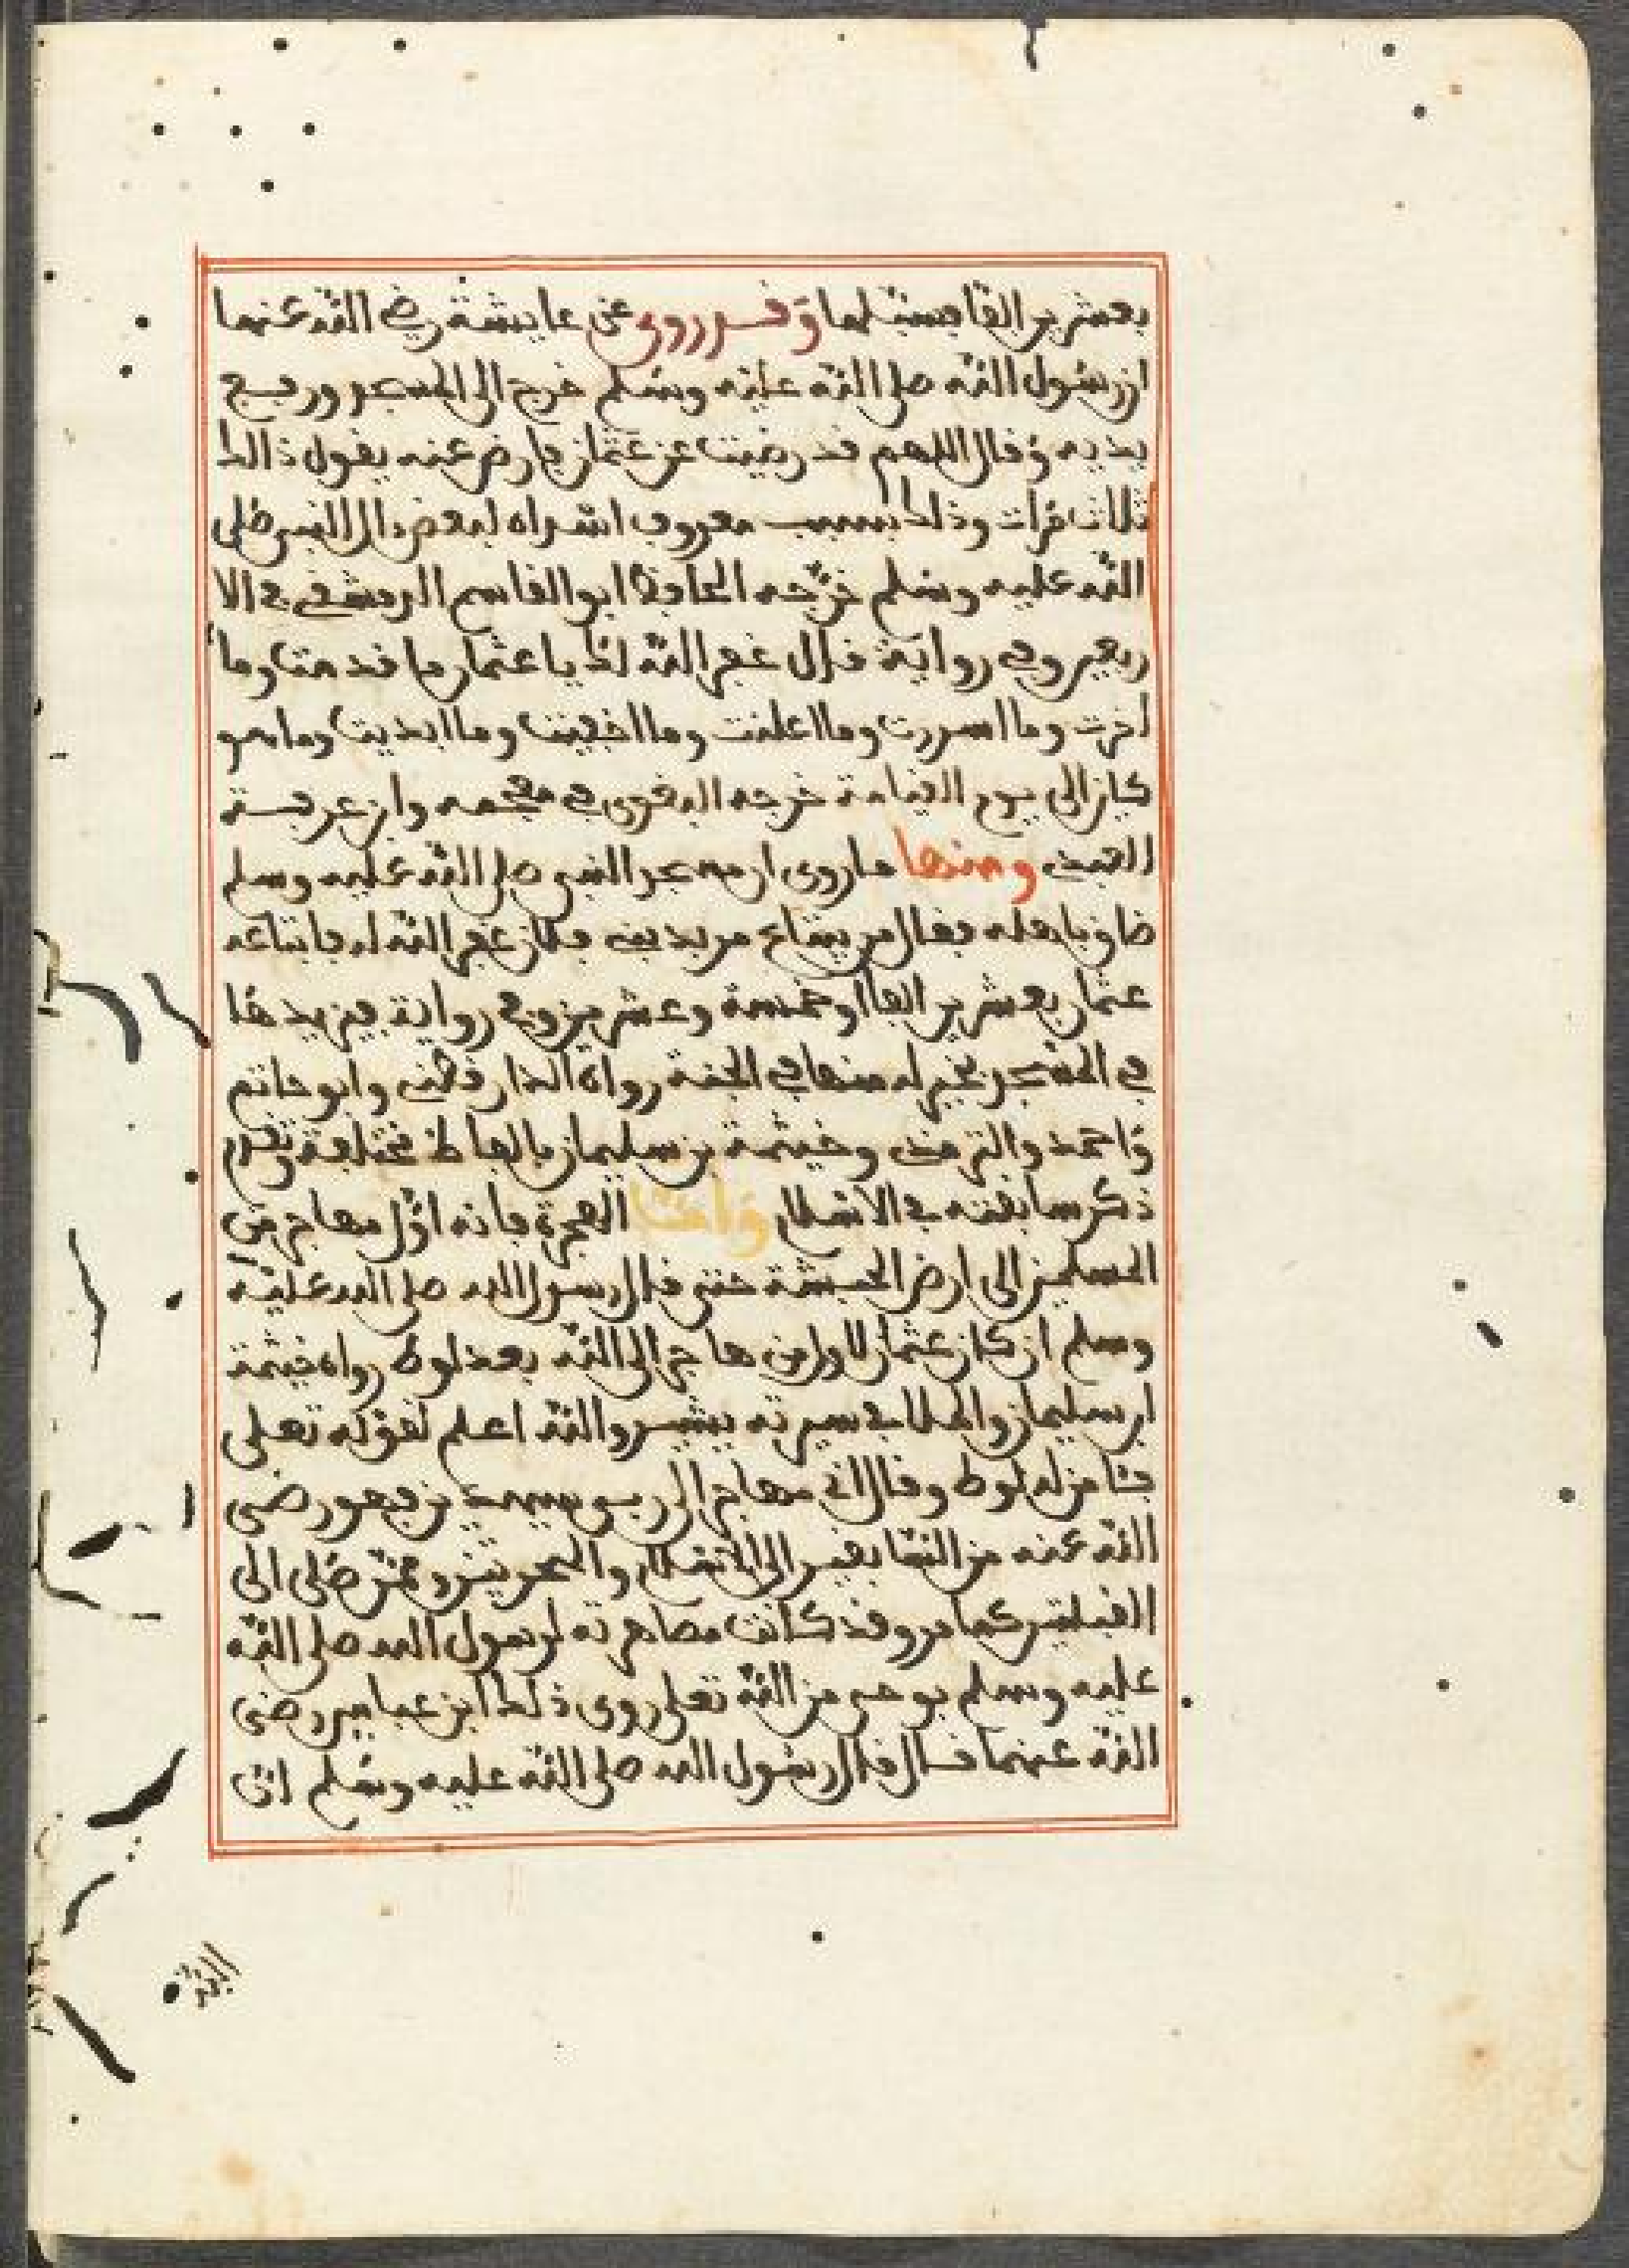 بعشرين الفا فسبلها وقد روي عن عايشة رضي الله عنها
ان رسول الله صلى الله عليه وسلم خرج الى المسجد ورفع
يديه وقال اللهم قد رضيت عن عثمان فارض عنه يقول ذالك
ثلاث مرات وذلك بسبب معروف اسداه لبعض ءال النبي صلى
الله عليه وسلم خرّجه الحافظ ابو القاسم الدمشقي في الا
ربعين وفي رواية قال غفر الله لك يا عثمان ما قدمت وما
اخرت وما اسررت وما اعلنت وما اخفيت وما ابديت وما هو
كاين الى يوم القيامة خرجه البغوي في معجمه وابن عرفة
العبدي ومنها ما روي ان مسجد النبي صلى الله عليه وسلم
ضاق باهله فقال من يبتاع مربد بني فلان غفر الله له فابتاعه
عثمان بعشرين الفا او خمسة وعشرين وفي رواية فيزيدها
في المسجد بخير له منها في الجنة رواه الدارقطني وابو حاتم
واحمد والترمذي وخيثمة بن سليمان بالفاظ مختلفة وتقدم
ذكر سابقته في الاسلام واما الهجرة فانه اول مهاجر من
المسلمين الى ارض الحبشة حتى قال رسول الله صلى الله عليه
وسلم ان كان عثمان لاول من هاجر الى الله بعد لوط رواه خيثمة
ابن سليمان والملا في سيرته يشير والله اعلم لقوله تعلى
فئامن له لوط وقال اني مهاجر الى ربي فهو رضي
الله عنه من السابقين الى الاسلام والهجرتين وممن صلى الى
القبلتين كما مر وقد كانت مصاهرته لرسول الله صلى الله
عليه وسلم بوحي من الله تعلى روى ذلك ابن عباس رضي
الله عنهما قال قال رسول الله صلى الله عليه وسلم ان
الله